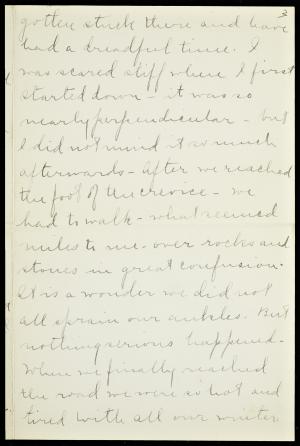 3
gotten stuck there and have
had a dreadful time. I
was scared stiff where I first
started down - it was so
nearly perpendicular - but
I did not mind it so much
afterwards - After we reached
the foot of the crevice - we
had to walk - what seemed
miles to me - over rocks and
stones in great confusion.
It is a wonder we did not
all sprain our ankles. But
nothing serious happened.
When we finally reached
the road we were so hot and
tired with all our winter